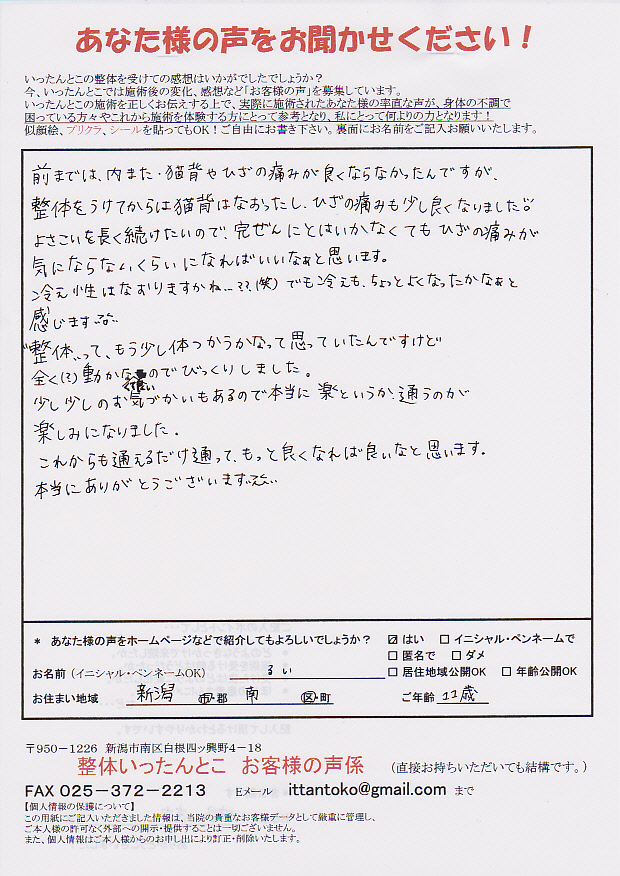 あなた様の声をお聞かせください！
いったんとこの整体を受けての感想はいかがでしたでしょうか？
今、いったんとこでは施術後の変化、感想など「お客様の声」を募集しています。
いったんとこの施術を正しくお伝えする上で、実際に施術されたあなた様の率直な声が、身体の不調で
困っている方々やこれから施術を体験する方にとって参考となり、私にとって何よりの力となります！
似顔絵、プリクラ、シールを貼ってもOK！ご自由にお書き下さい。裏面にお名前をご記入お願いいたします。
前までは、内また・猫背やひざの痛みが良くならなかったんですが、
整体をうけてからは猫背はなおったし、ひざの痛みも少し良くなりました
よさこいを長く続けたいので、完ぜんにとはいかなくてもひざの痛みが
気にならないくらいになればいいなぁと思います。
冷え性はなおりますかね…??(笑) でも冷えも、ちょっとよくなったかなぁと
感じます
"整体"って、もう少し体つかうかなって思っていたんですけど
全く(?)動かないのでびっくりしました。
少し少しのお気づかいもあるので本当に楽というか、通うのが
楽しみになりました。
これからも通えるだけ通って、もっと良くなれば良いなと思います。
本当にありがとうございます
＊ あなた様の声をホームページなどで紹介してもよろしいでしょうか？ ☑ はい □ イニシャル・ペンネームで
□ 匿名で □ ダメ
お名前（イニシャル・ペンネームOK） るい □ 居住地域公開OK □ 年齢公開OK
お住まい地域 新潟 市・郡 南 区・町 ご年齢 22歳
〒950－1226 新潟市南区白根四ッ興野4－18
整体いったんとこ お客様の声係 （直接お持ちいただいても結構です。）
FAX 025－372－2213 Eメール ittantoko@gmail.com まで
【個人情報の保護について】
この用紙にご記入いただきました情報は、当院の貴重なお客様データとして厳重に管理し、
ご本人様の許可なく外部への開示・提供することは一切ございません。
また、個人情報はご本人様からのお申し出により訂正・削除いたします。